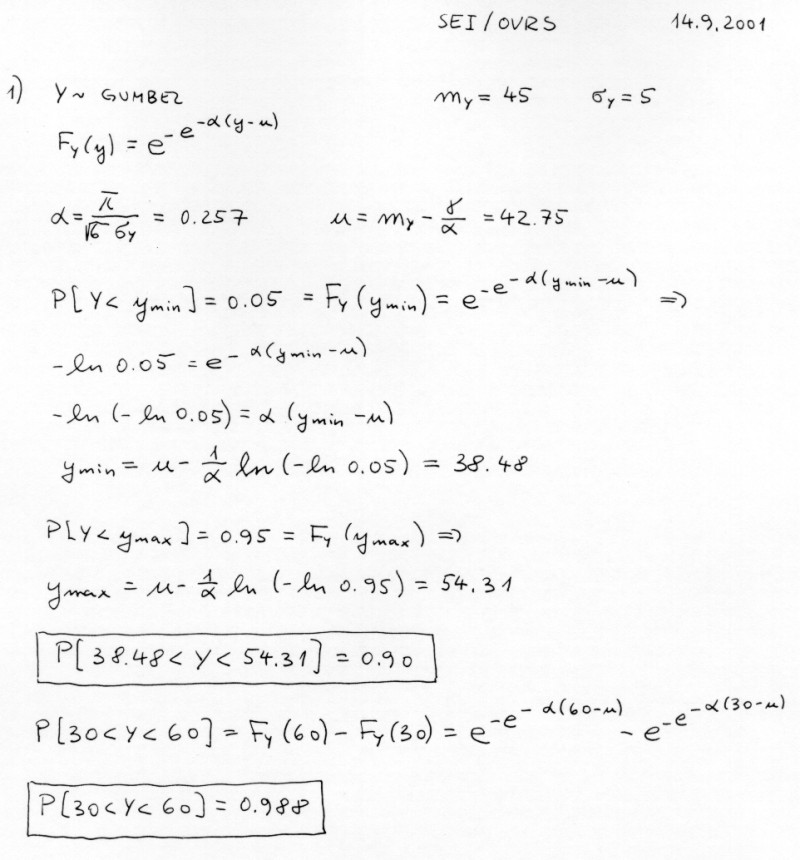 SEI/OVRS 14.9.2001
1) Y ~ GUMBEL m_Y = 45 σ_Y = 5
F_Y(y) = e^{-e^{-α(y-u)}}
α = π/(√6 σ_Y) = 0.257 u = m_Y - γ/α = 42.75
P[Y < y_min] = 0.05 = F_Y(y_min) = e^{-e^{-α(y_min-u)}} ⇒
-ln 0.05 = e^{-α(y_min-u)}
-ln(-ln 0.05) = α(y_min-u)
y_min = u - 1/α ln(-ln 0.05) = 38.48
P[Y < y_max] = 0.95 = F_Y(y_max) ⇒
y_max = u - 1/α ln(-ln 0.95) = 54.31
P[38.48 < Y < 54.31] = 0.90
P[30 < Y < 60] = F_Y(60) - F_Y(30) = e^{-e^{-α(60-u)}} - e^{-e^{-α(30-u)}}
P[30 < Y < 60] = 0.988